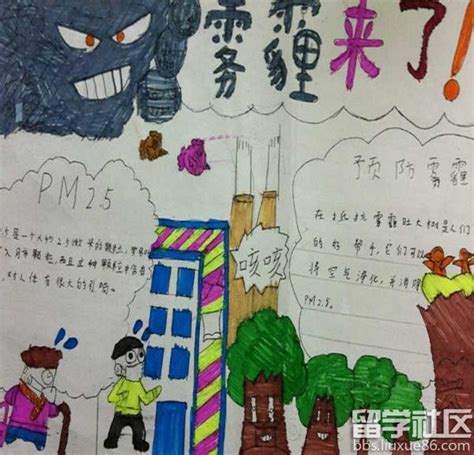 雾霾来了!
PM2.5
是一个大约2.5微米的颗粒,
颗粒,而且这种颗粒
,对人体有很大的引响。
咳咳
预防雾霾
在抵抗雾霾时大树是人们
的好帮手,它们可以
将空气净化,并清除
PM2.5。
留学社区
bbs.liuxue86.com